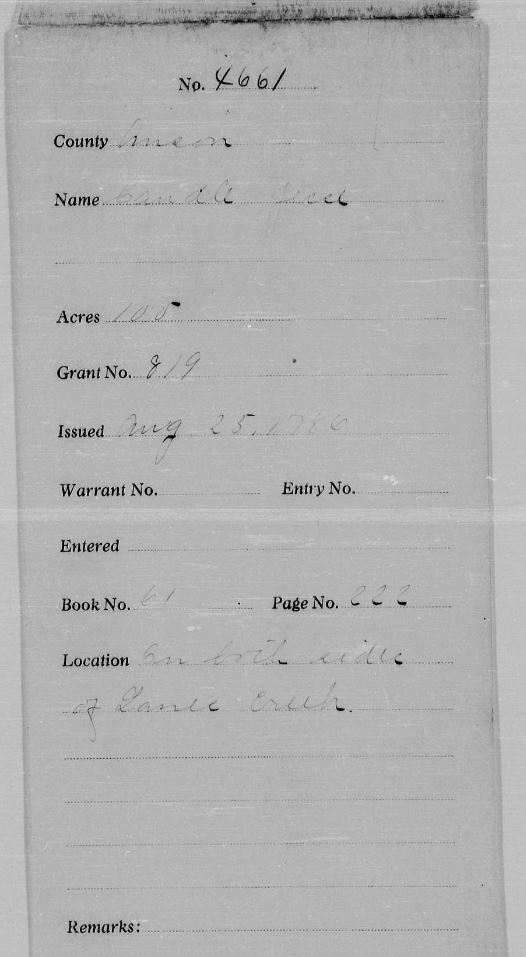 No. 4661
County Anson
Name Caudle
Acres 100
Grant No. 819
Issued Aug 25, 1786
Warrant No. Entry No.
Entered
Book No. 61 Page No. 222
Location On both sides
of Lanes Creek.
Remarks: